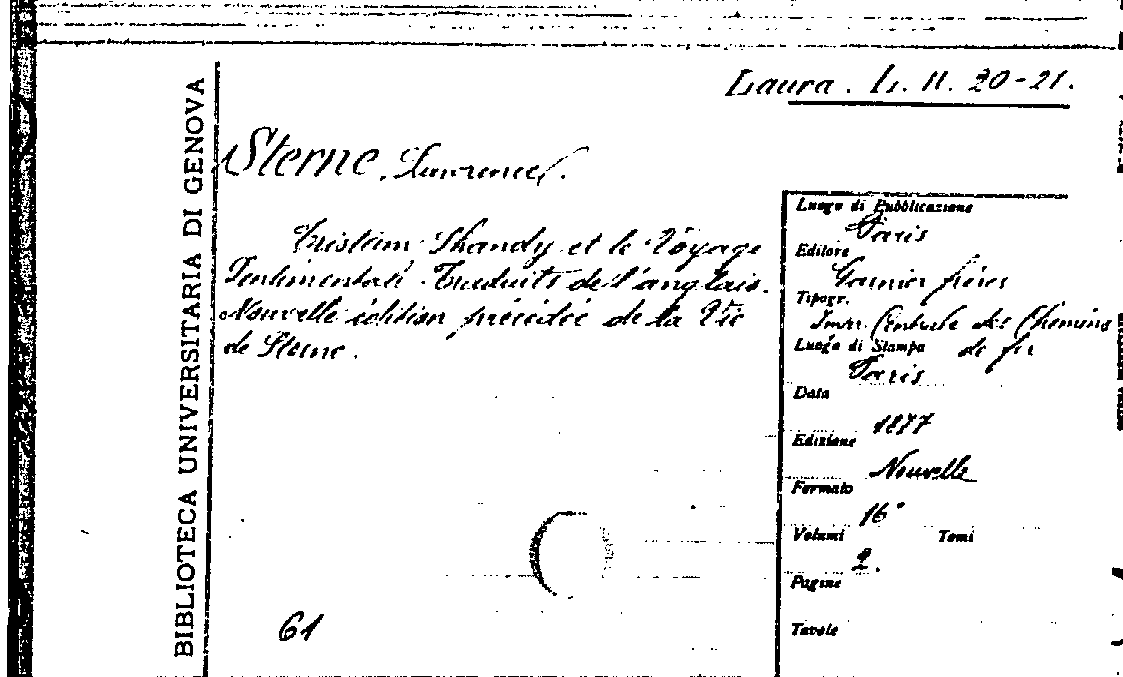 BIBLIOTECA UNIVERSITARIA DI GENOVA
Laura. L. II. 20-21.
Sterne, Lawrence.
Tristam Shandy et le Voyage
Sentimental. Traduits de l'anglais.
Nouvelle édition précédée de la Vie
de Sterne.
61
Luogo di Pubblicazione
Paris
Editore
Garnier frères
Tipogr.
Impr. Centrale des Chemins
de fer
Luogo di Stampa
Paris
Data
1877
Edizione
Nouvelle
Formato
16°
Volumi Tomi
2.
Pagine
Tavole